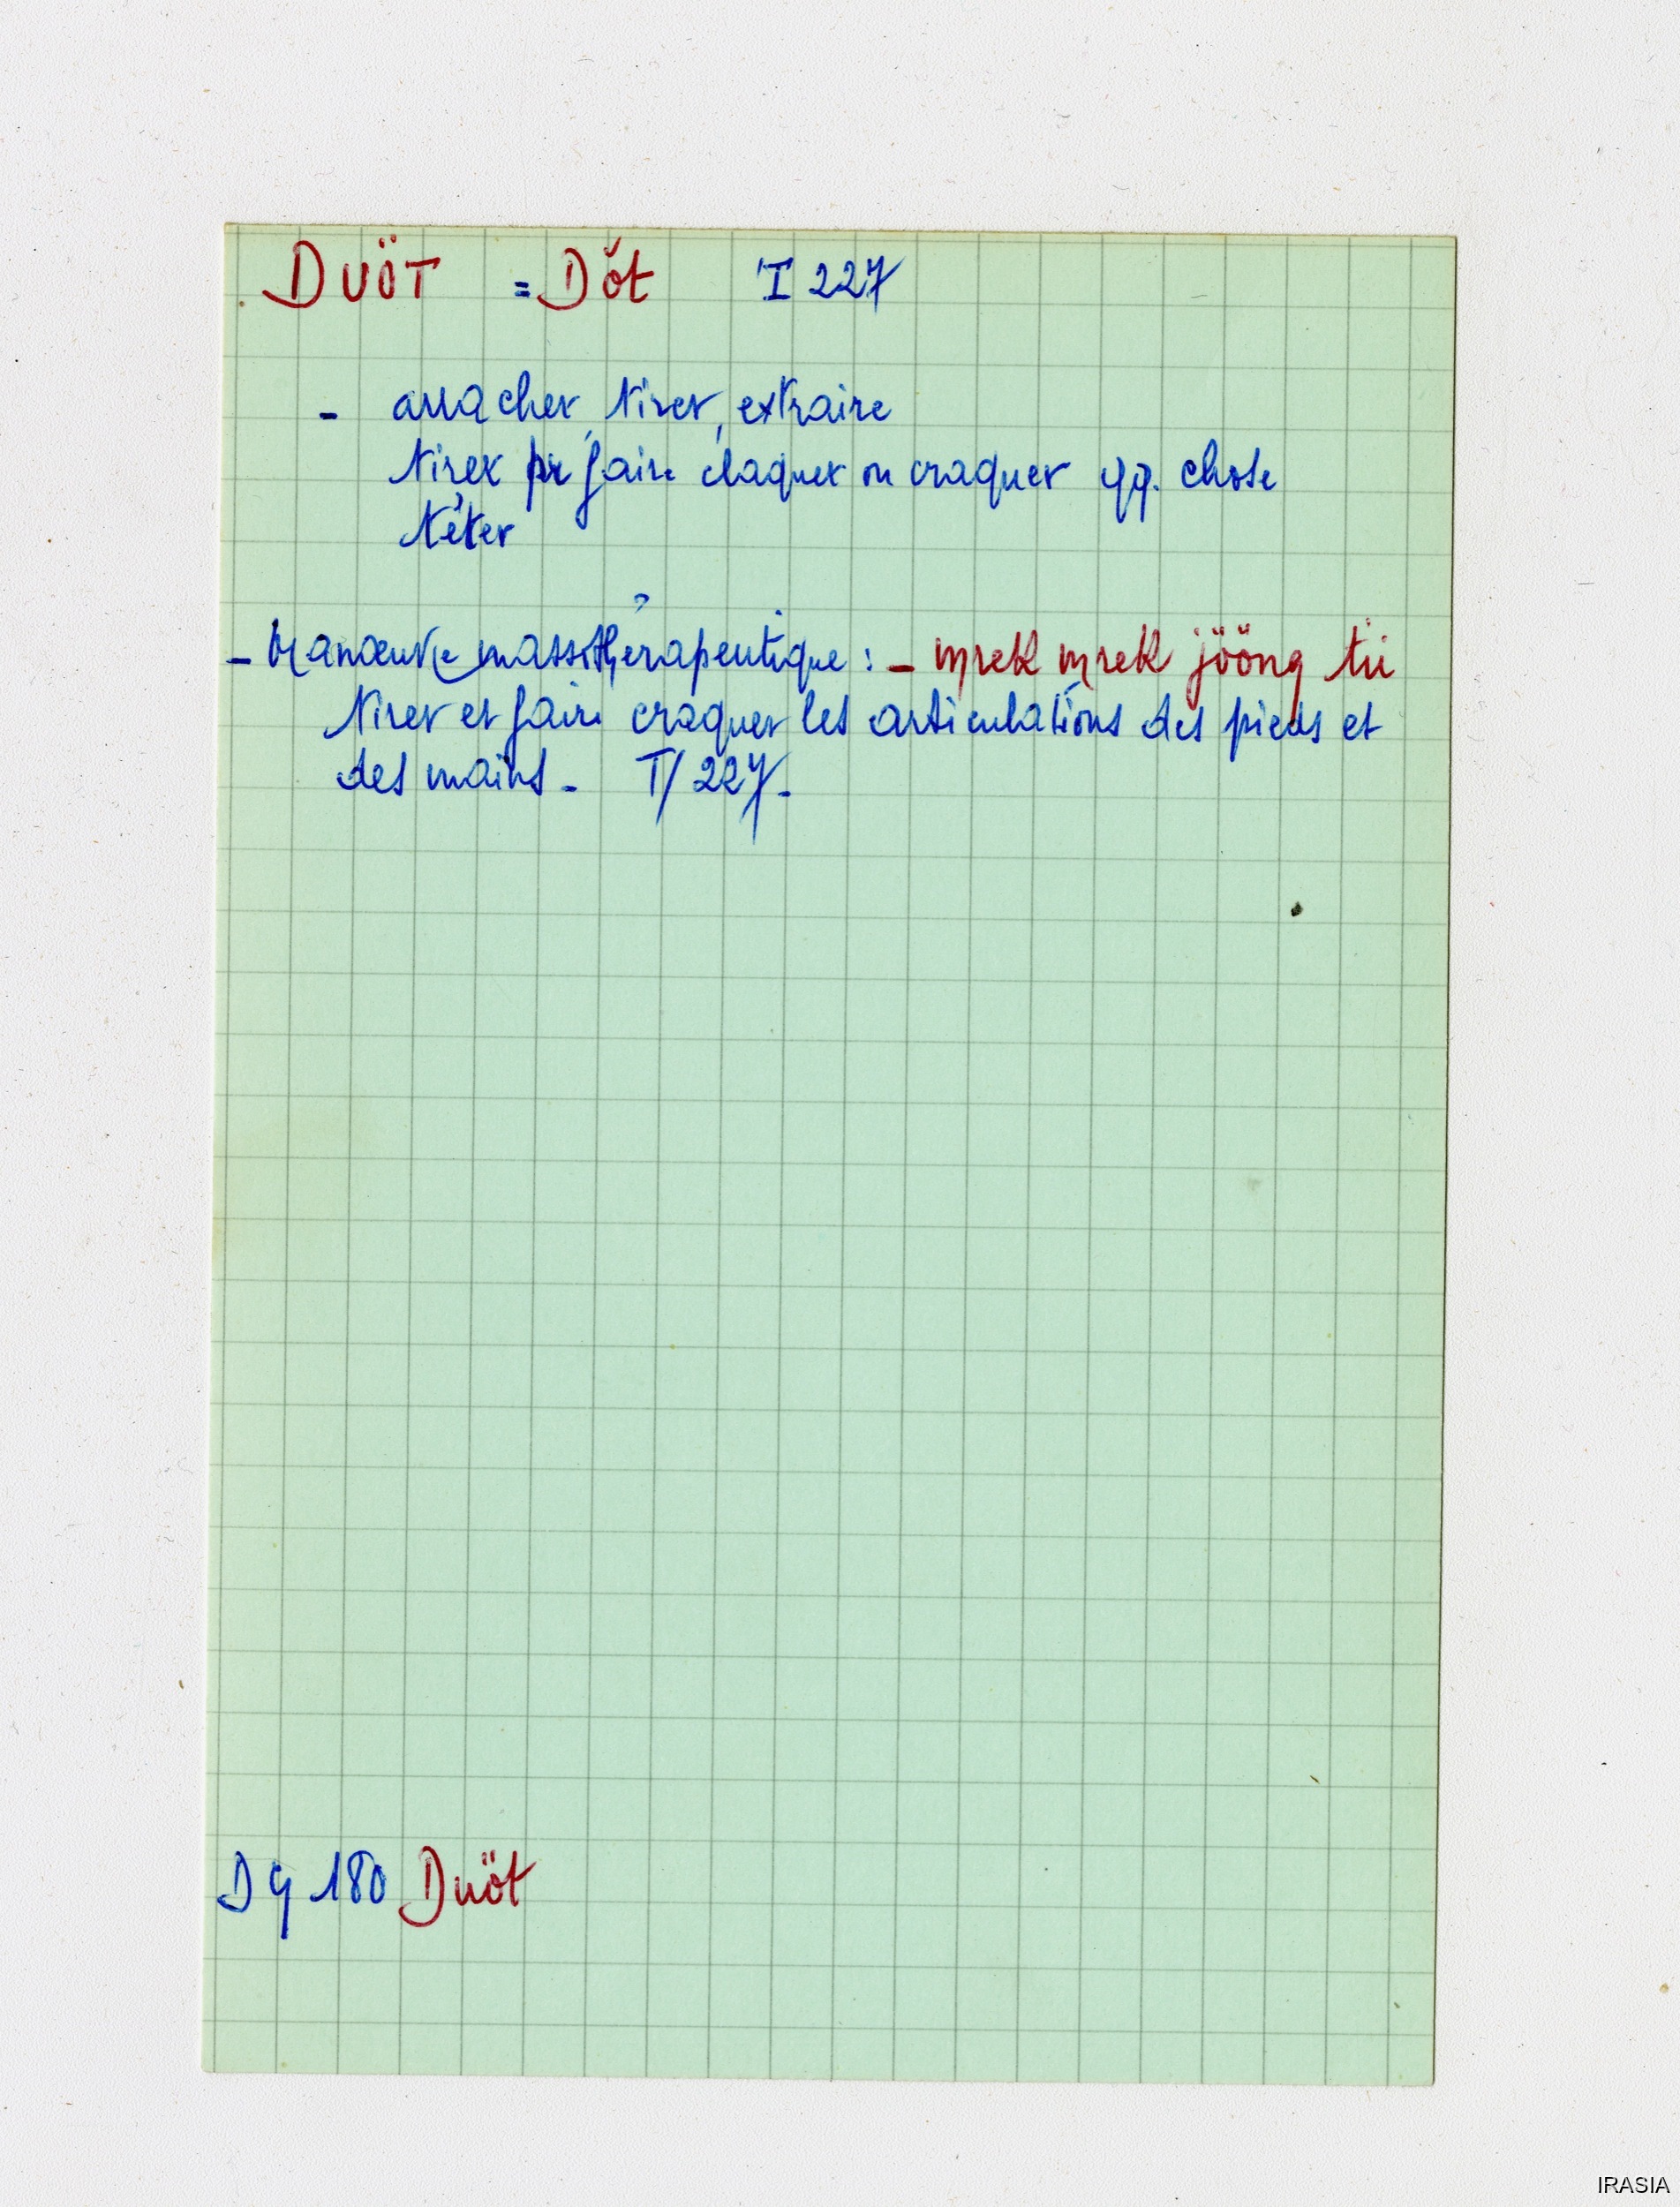 DUÖT = Dŏt T 227
- arracher, tirer, extraire
tirer pr faire claquer ou craquer qq. chose
téter
- Manœuvre massothérapeutique : - mrek mrek jööng tii
tirer et faire craquer les articulations des pieds et
des mains - T/ 227 -
Dg 180 Duöt
IRASIA